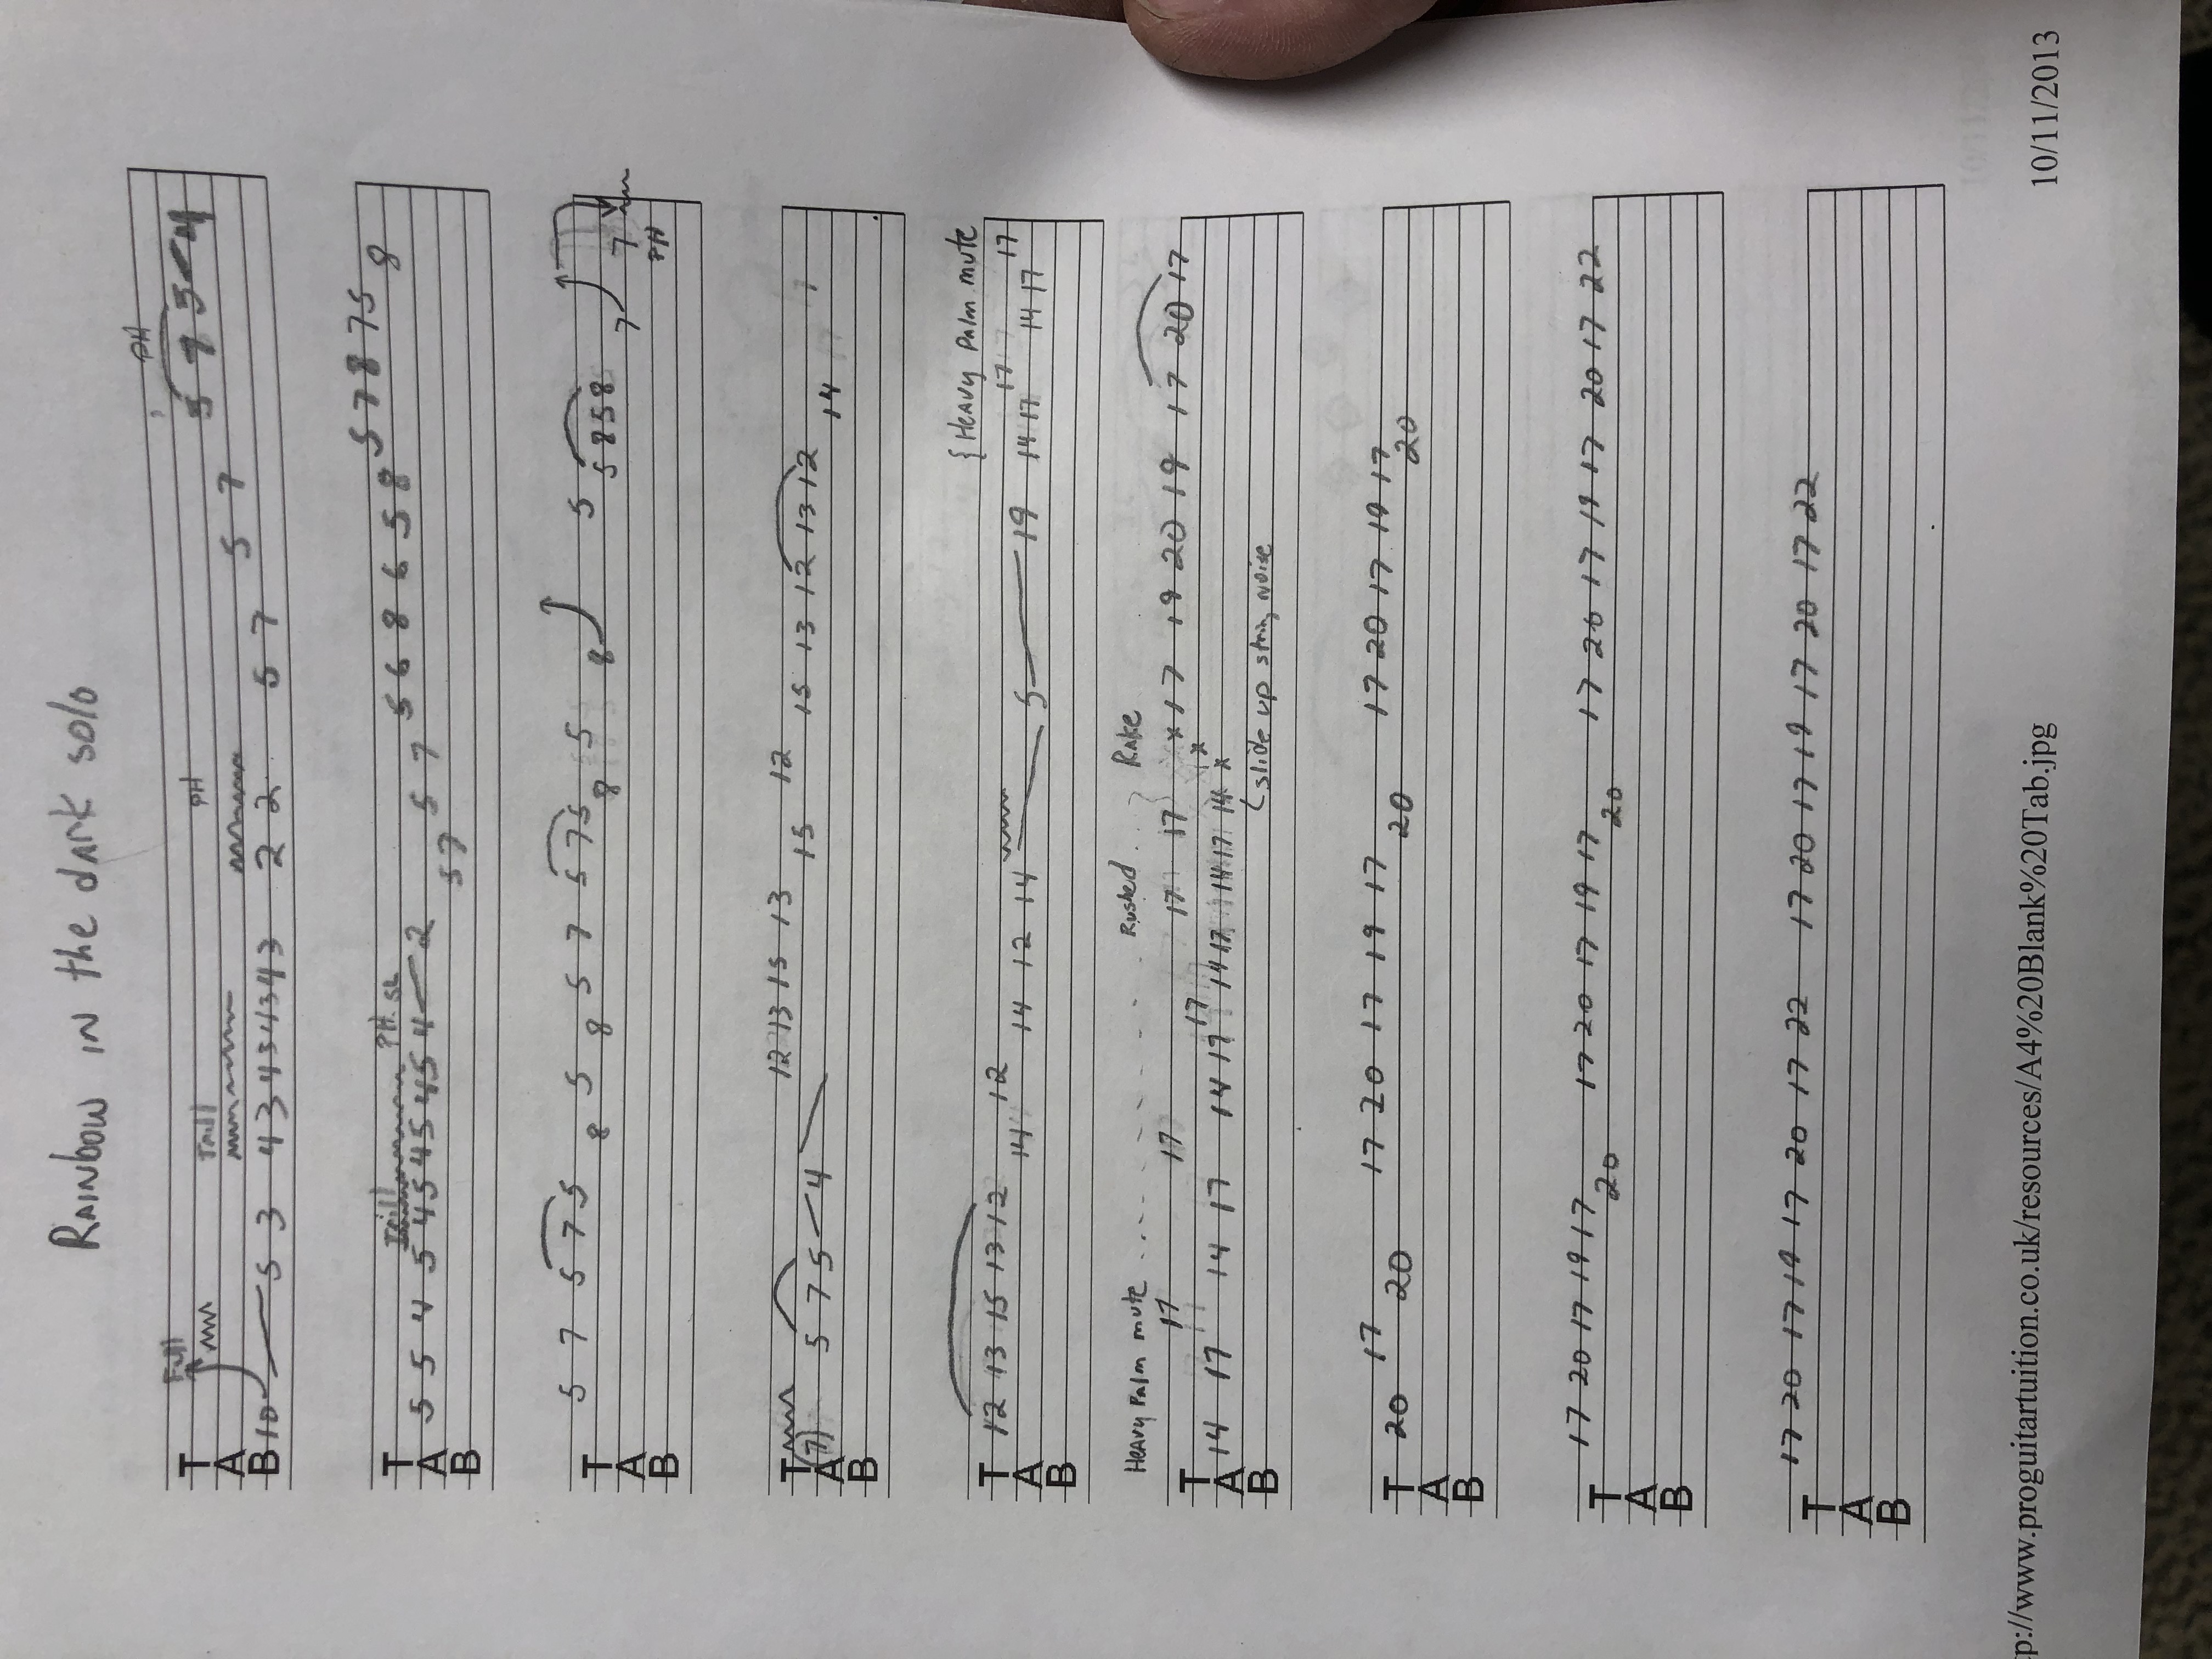 RAINbow IN the dARK solo
Full
Trill
PH
PH
T
A
B
10 5 3 4 3 4 3 4 3 4 3 4 3 2 2 5 7 5 7
Trill PH SL
T
A
B
5 5 4 5 4 5 4 5 4 5 4 5 4 2 5 7 5 7 5 6 8 6 5 8 5 7 8 7 5 8
T
A
B
5 7 5 7 5 8 5 8 5 7 5 7 5 8 5 8 5 5 8 5 8 7 7
PH
T
A
B
(7) 5 7 5 4 12 13 15 13 15 12 15 13 12 13 12 14
{HEAVY PAlm mute
T
A
B
12 13 15 13 12 14 12 14 12 14 5 19 14 17 17 14 17 17
HEAVY PAlm mute Rushed RAKE
17 17 17 17 17
T
A
B
14 17 14 17 14 19 14 17 14 17 14 x x x 17 19 20 19 17 20 17
(slide up string noise
T
A
B
20 17 20 17 20 17 19 17 20 17 20 17 19 17 20
T
A
B
17 20 17 19 17 20 17 20 17 19 17 20 17 20 17 19 17 20 17 22
T
A
B
17 20 17 19 17 20 17 22 17 20 17 19 17 20 17 22
p://www.proguitartuition.co.uk/resources/A4%20Blank%20Tab.jpg 10/11/2013